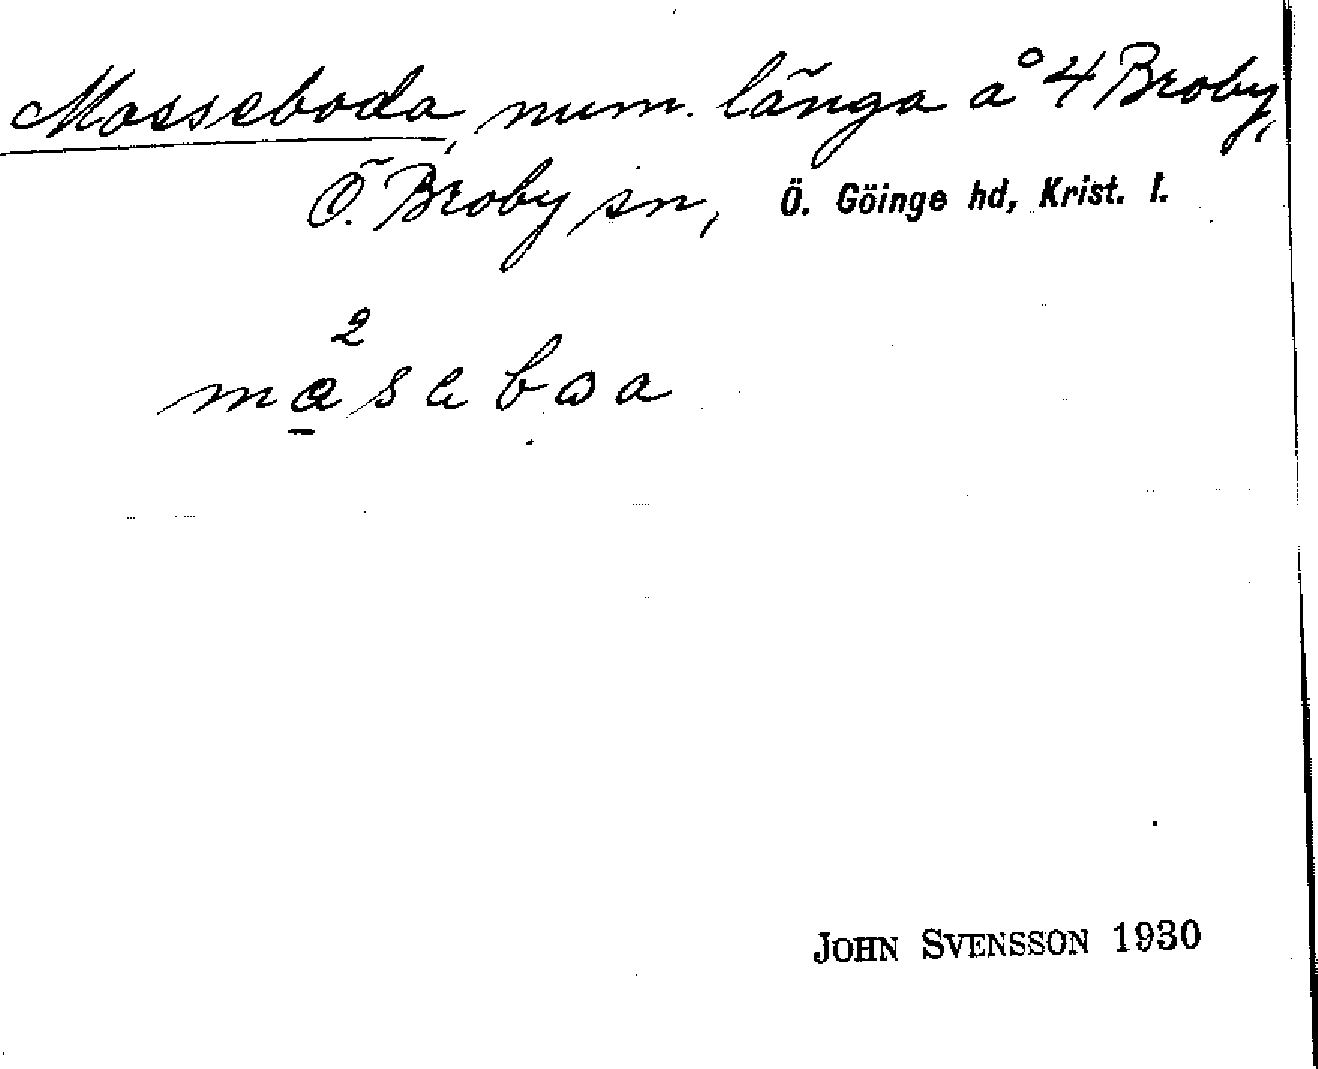 Masseboda, num. länga å 4 Broby,
Ö. Broby sn, Ö. Göinge hd, Krist. l.
2
maseboa
JOHN SVENSSON 1930